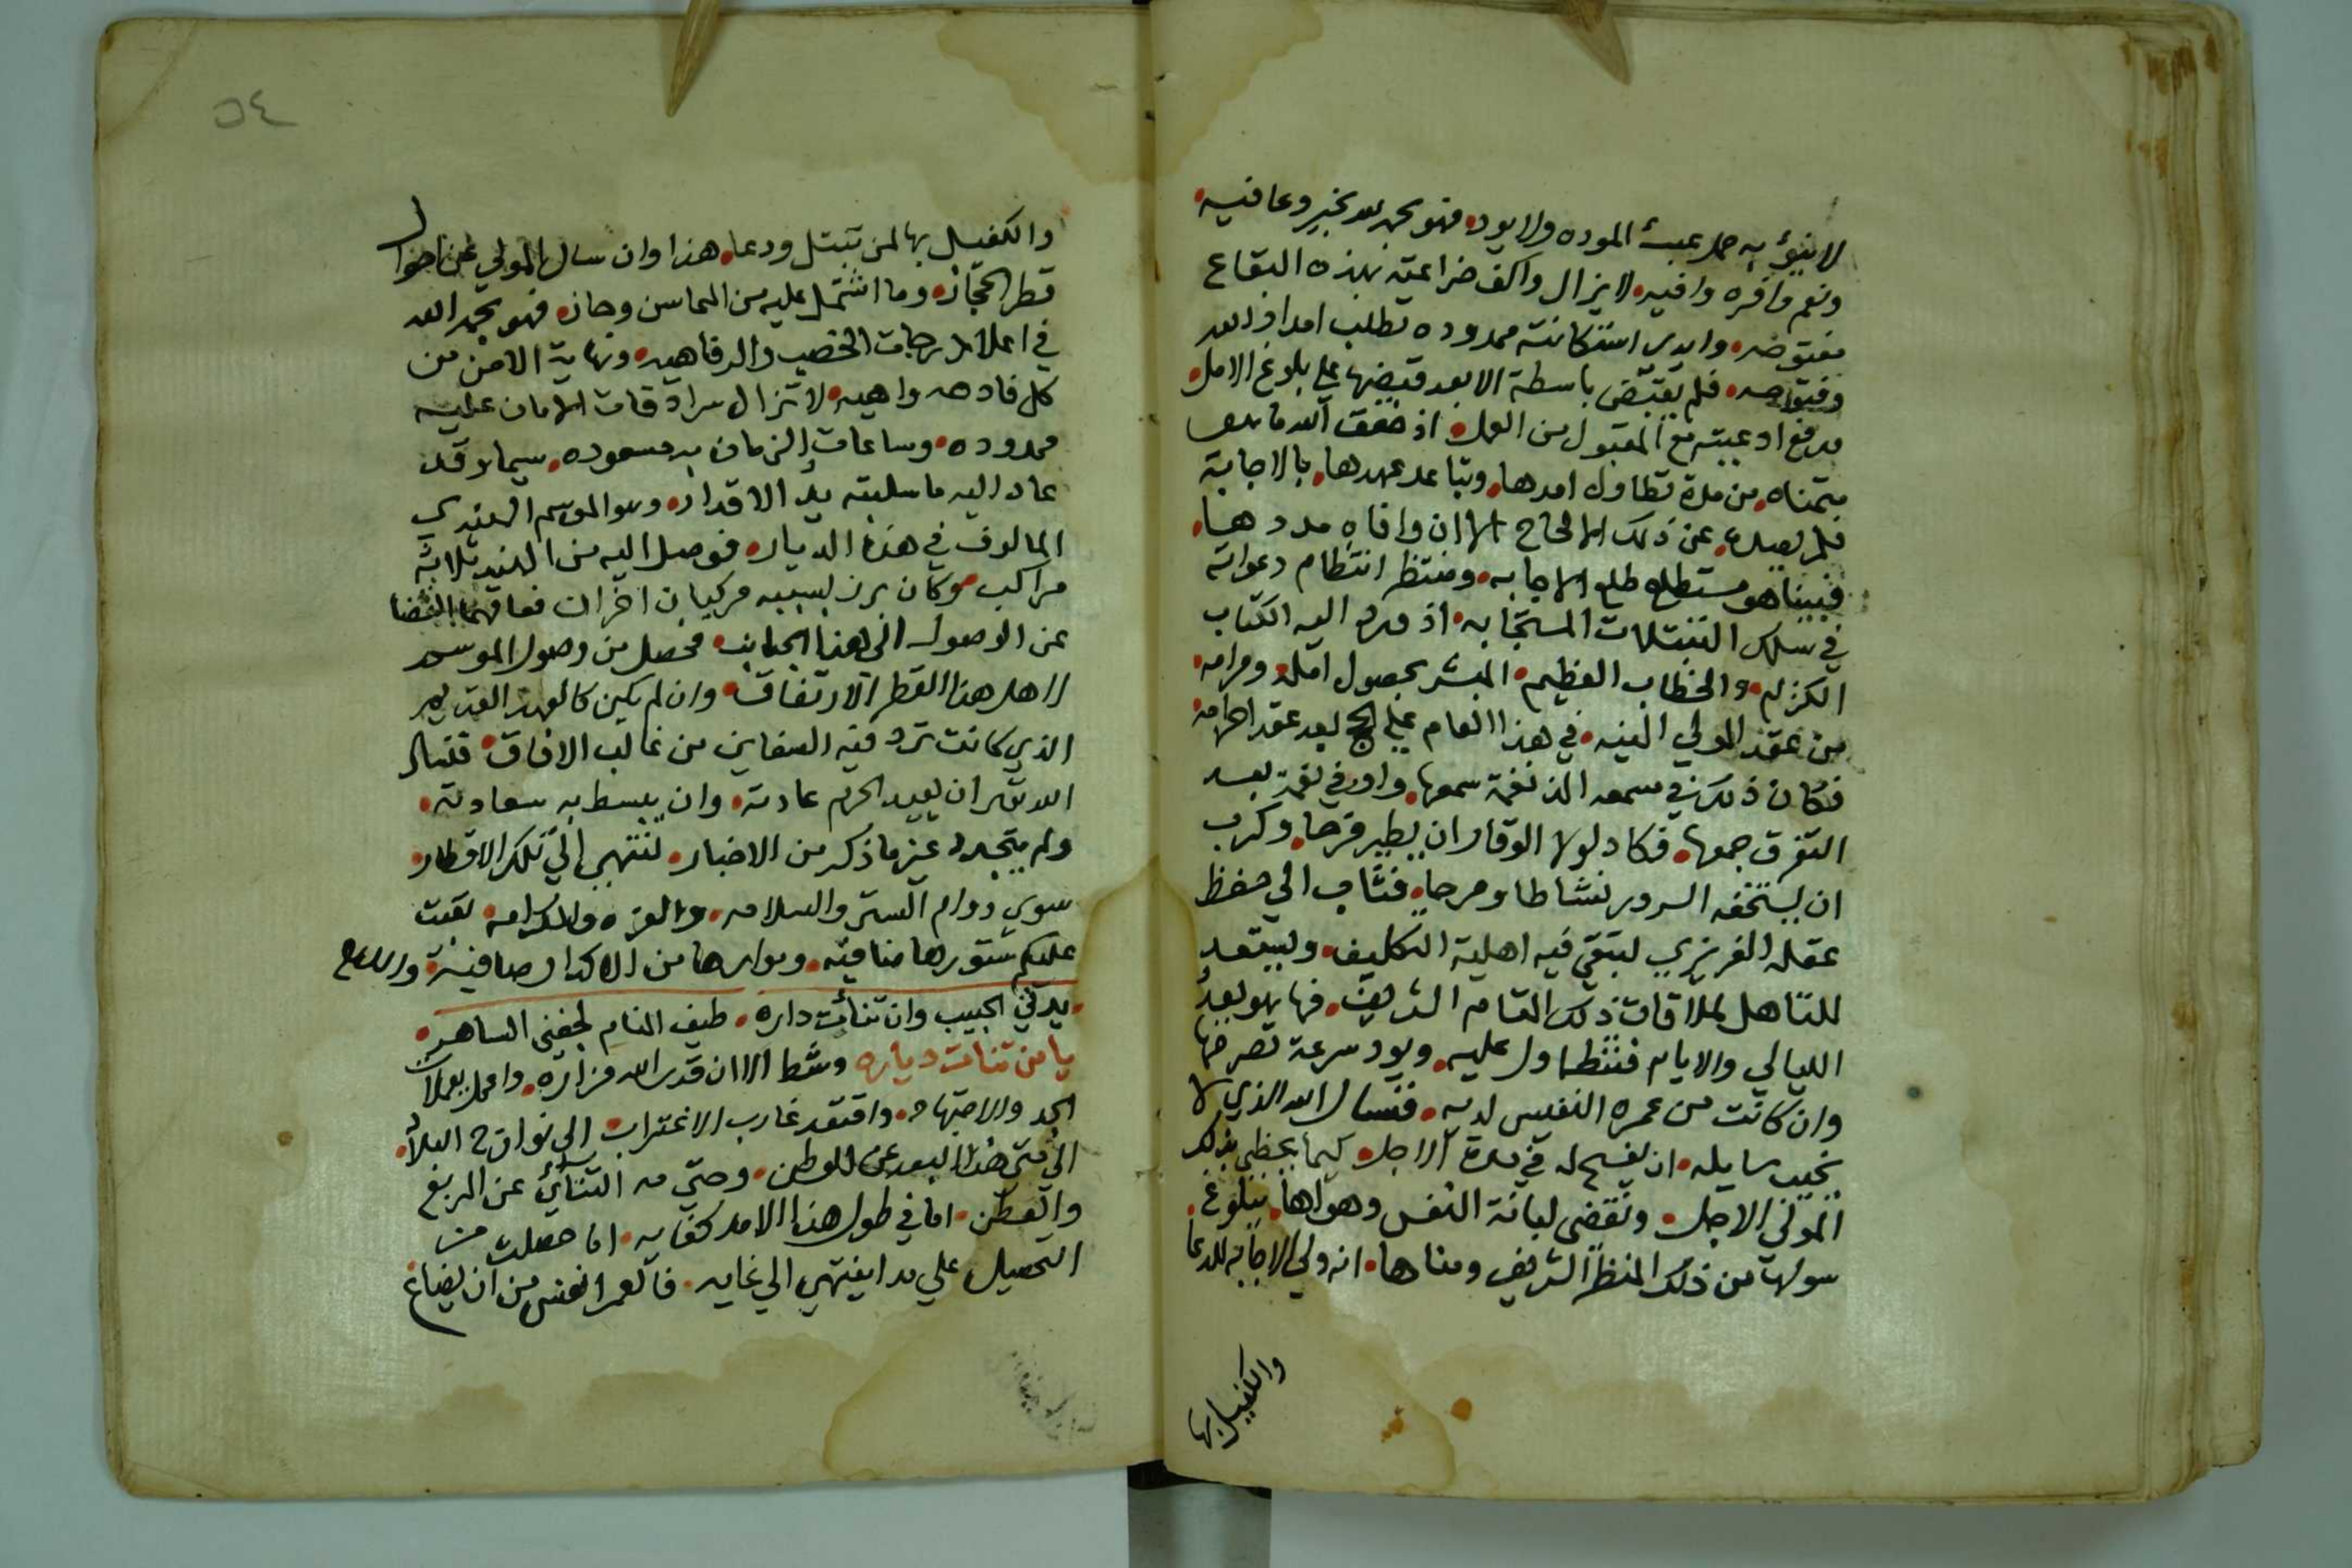 لا ينوٌ به حمل عبٔ الموده ولا يوده فهو بحمد الله بخير وعافيه
ونعم وافره وافيه لا يزال واكف ضراعته بهذه البقاع
وايدي استكانته ممدوده تطلب امداد الله
فلم يقبض باسطة الا بعد قبضها على بلوغ الامل
ادعيته مع المقبول من العمل اذ الله ما
يتمناه من مدة تطاول امدها وتباعد عهدها بالاجابة
فلم عن ذلك الالحاح الا ان وافاه مددها
فبينا هو مستطلع طلع الاجابه ومنتظر انتظام دعواته
في سلك التبتلات المستجابه اذ ورد اليه الكتاب
الكريم والخطاب العظيم المبشر بحصول امله ومرامه
من عقد المولي النيه في هذا العام علي الحج بعد عقد احرامه
فكان ذلك في سمعه الذ نغمة سمعها واوفي نعمة بعد
التفرق جمعها فكاد لولا الوقار ان يطير فرحا وكرب
ان يستخفه السرور نشاطا ومرحا فثاب الي حفظ
عقله الغريزي لتبقي فيه اهلية التكليف وليستعد
للتاهل لملاقات ذلك المقام الشريف فها هو يعد
الليالي والايام فتتطاول عليه ويود سرعة تصرمها
وان كانت من عمره النفيس لديه فنسال الله الذي لا
يخيب سايله ان يفسح له في مدة الاجل كيما يحظي بذلك
المولي الاجل ونقضي لبانة النفس وهواها ببلوغ
سولها من ذلك المنظر الشريف ومناها انه ولي الاجابه للدعا
والكفيل بها
٥٤
والكفيل بها لمن تبتل ودعا هذا وان سال المولي عن احوال
قطر الحجاز وما اشتمل عليه من المحاسن وحاز فهو بحمد الله
في اعلا درجات الخصب والرفاهيه ونهاية الامن من
كل واهيه لا تزال سرادقات الامان عليه
ممدوده وساعات الزمان به مسعوده سيما وقد
عاد اليه ما سلبته يد الاقدار وهو الموسم الهندي
المالوف في هذه الديار فوصل اليه من الهند ثلاثة
مراكب وكان برز لسببه مركبان اخران فعاقهما القضا
عن الوصول الى هذا الجانب فحصل من وصول الموسم
لاهل هذا القطر الارتفاق وان لم يكن كالعهد القديم
الذي كانت ترد فيه السفاين من غالب الافاق فنسال
الله تعالى ان يعيد الحرم عادته وان يبسط به سعادته
ولم يتجدد غير ما ذكر من الاخبار لننهي الي تلك الاقطار
سوي دوام الستر والسلامه والعزه والكرامه بقيت
عليكم ستورها ضافيه ومواردها من الاكدار صافية والسلام
يدني الحبيب وان تنأت داره طيف المنام لجفني الساهر
يا من تنات دياره وشط الا ان قدس الله مزاره واعمل يعملات
الجد والاجتهاد واقتعد غارب الاغتراب الى نوازح البلاد
الى متى هذا البعد عن الوطن وحتي مه التنائي عن المربع
والعطن اما في طول هذا الامد كفايه اما حصلت من
التحصيل علي مدا ينتهي الي غايه فالعمر انفس من ان يضاع